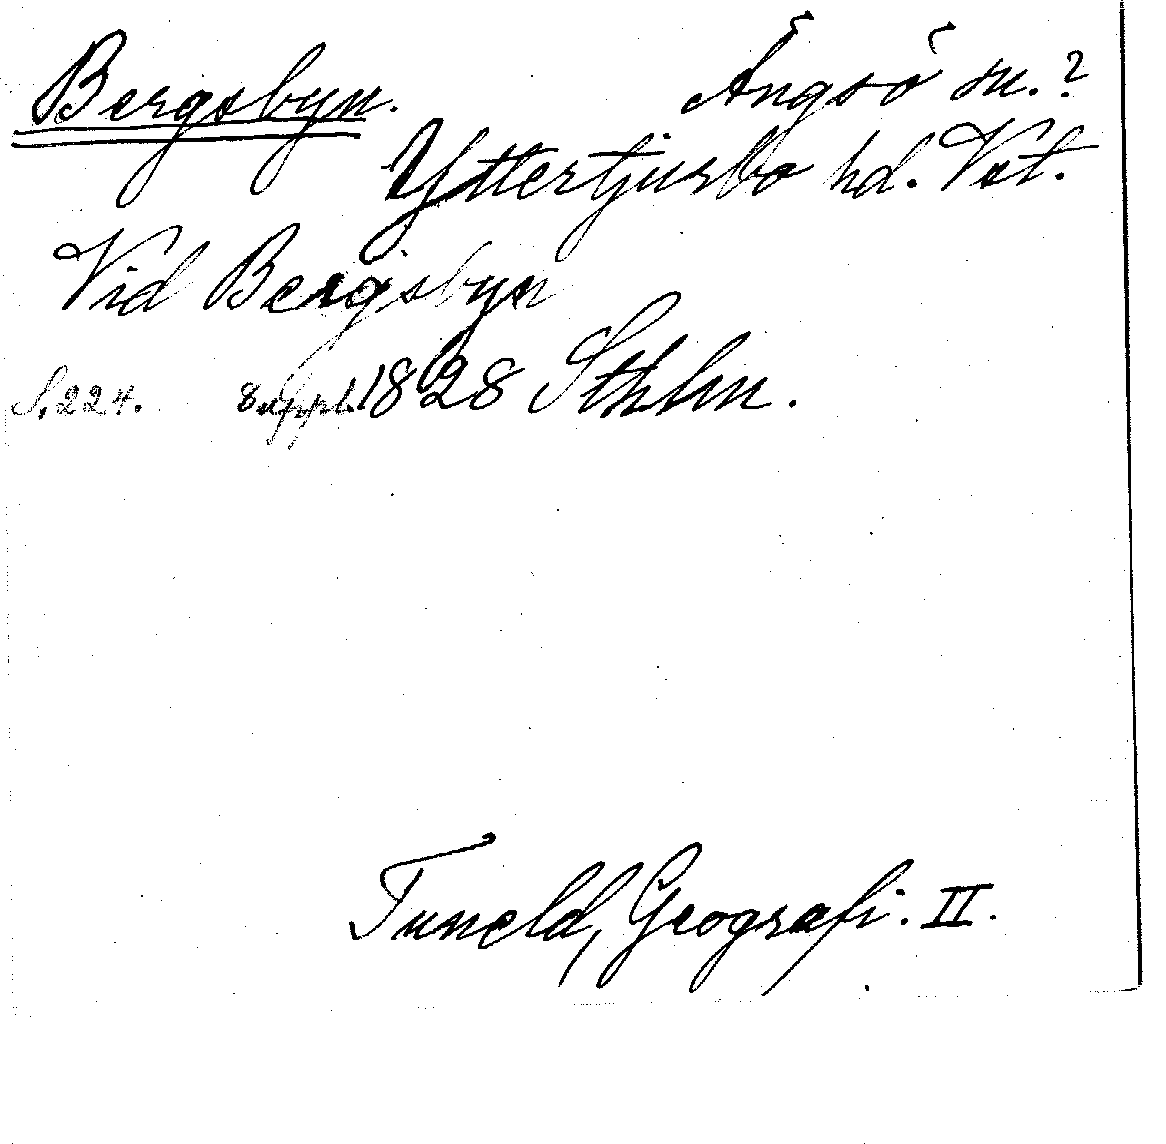 Bergsbyn. Ängsö sn.?
Yttertjurbo hd. Vst.
Vid Bergsbyn
S. 224. 8 uppl. 1828 Sthlm.
Tuneld, Geografi. II.